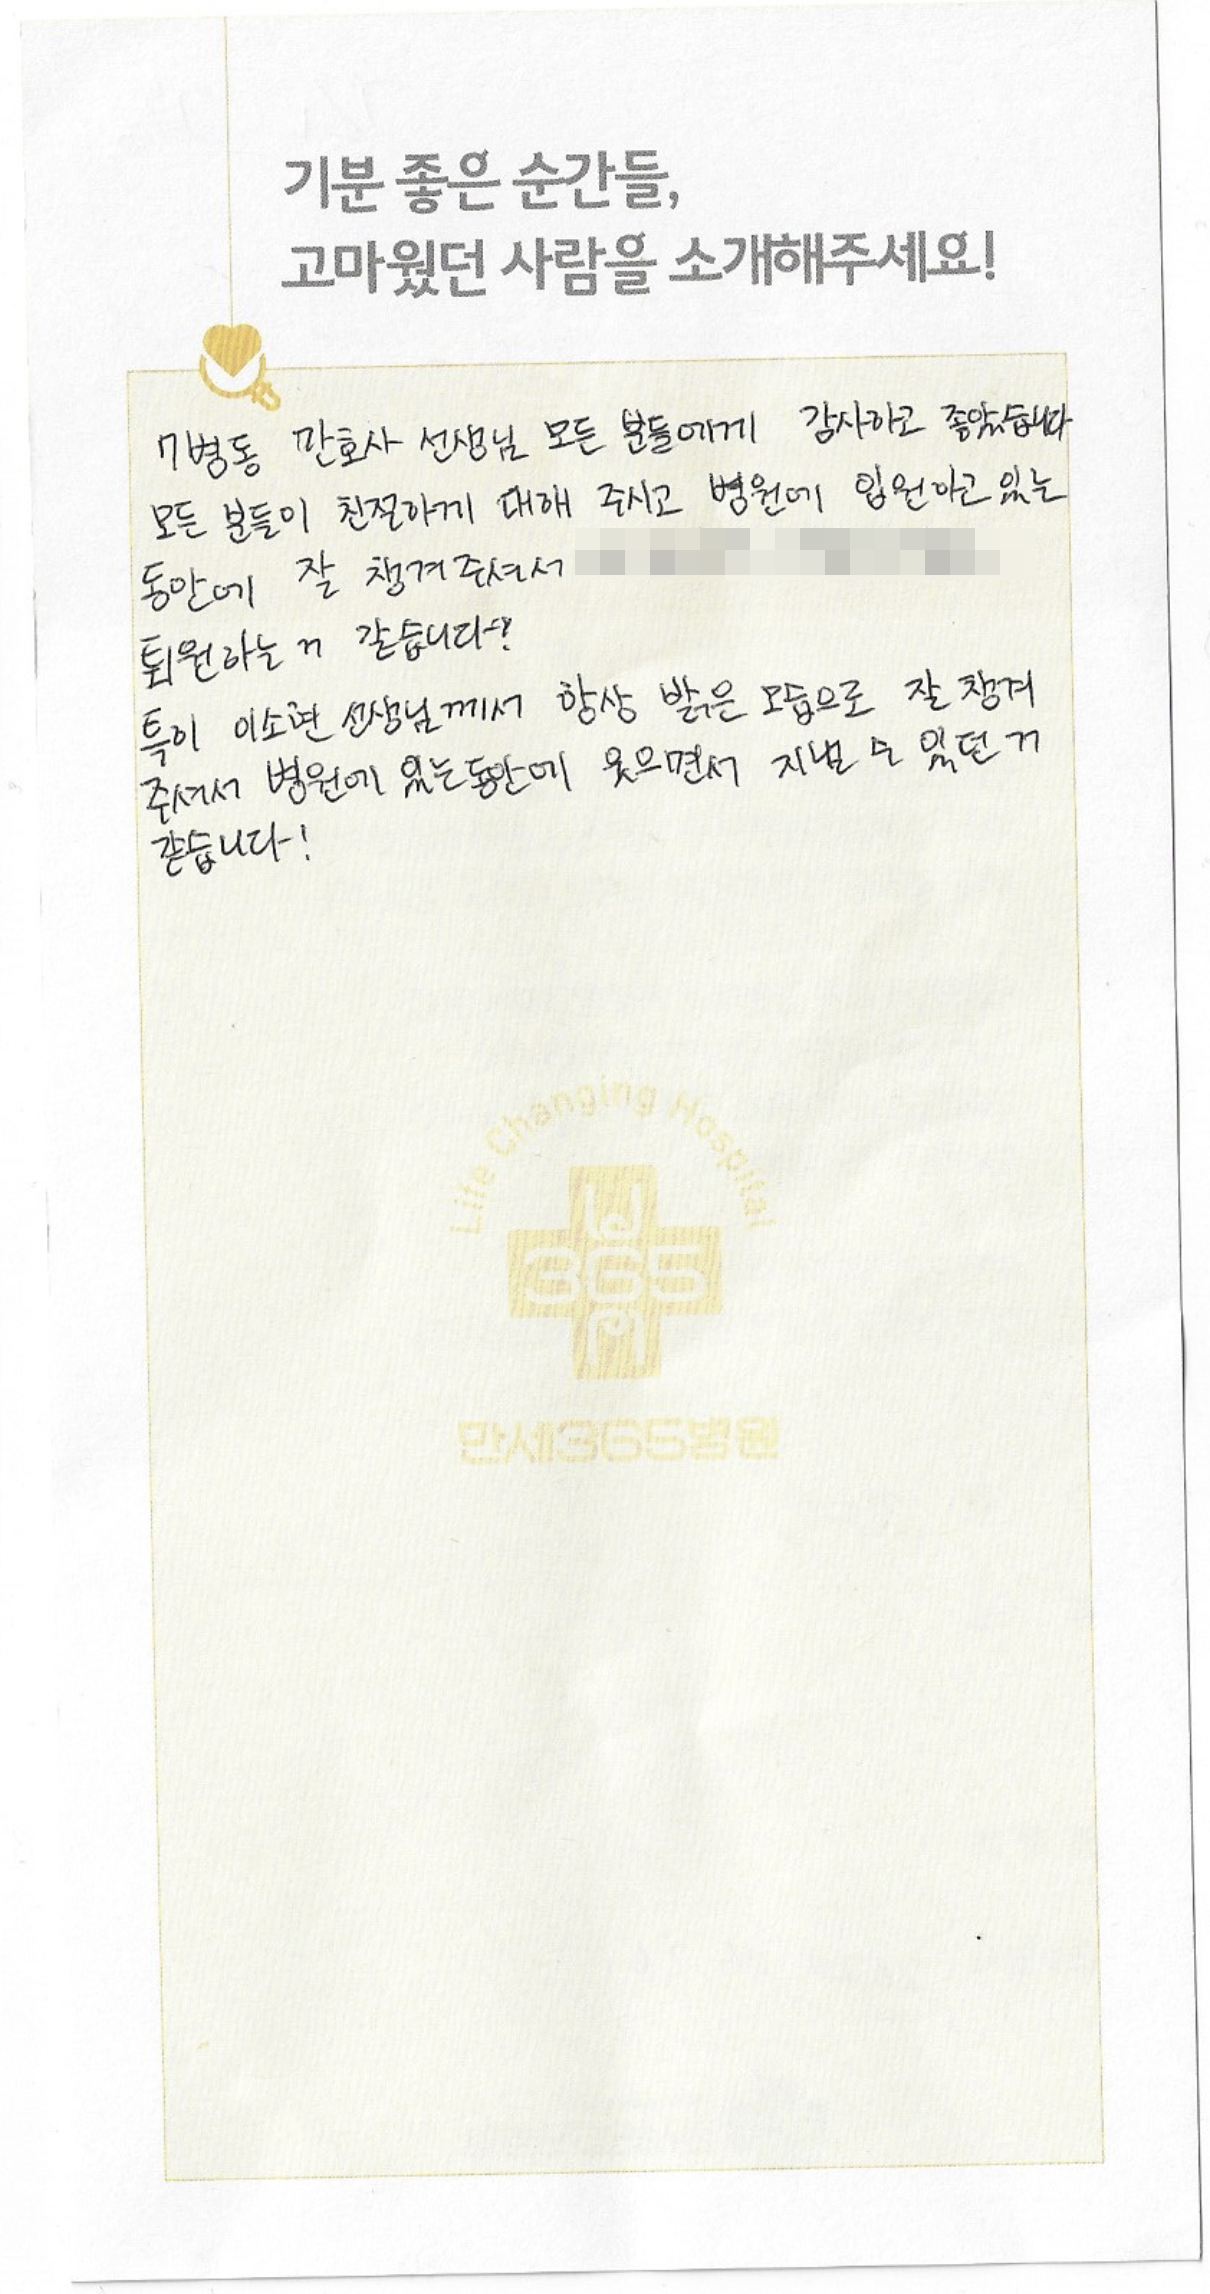 기분 좋은 순간들,
고마웠던 사람을 소개해주세요!
7병동 간호사 선생님 모든 분들에게 감사하고 좋았습니다
모든 분들이 친절하게 대해 주시고 병원에 입원하고 있는
동안에 잘 챙겨주셔서
퇴원하는 거 같습니다!
특히 이소현 선생님께서 항상 밝은 모습으로 잘 챙겨
주셔서 병원에 있는 동안에 웃으면서 지낼 수 있던 거
같습니다!
Life Changing Hospital
365
만세365병원